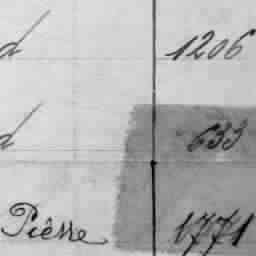 d 1206
d 633
Pièrre 1771